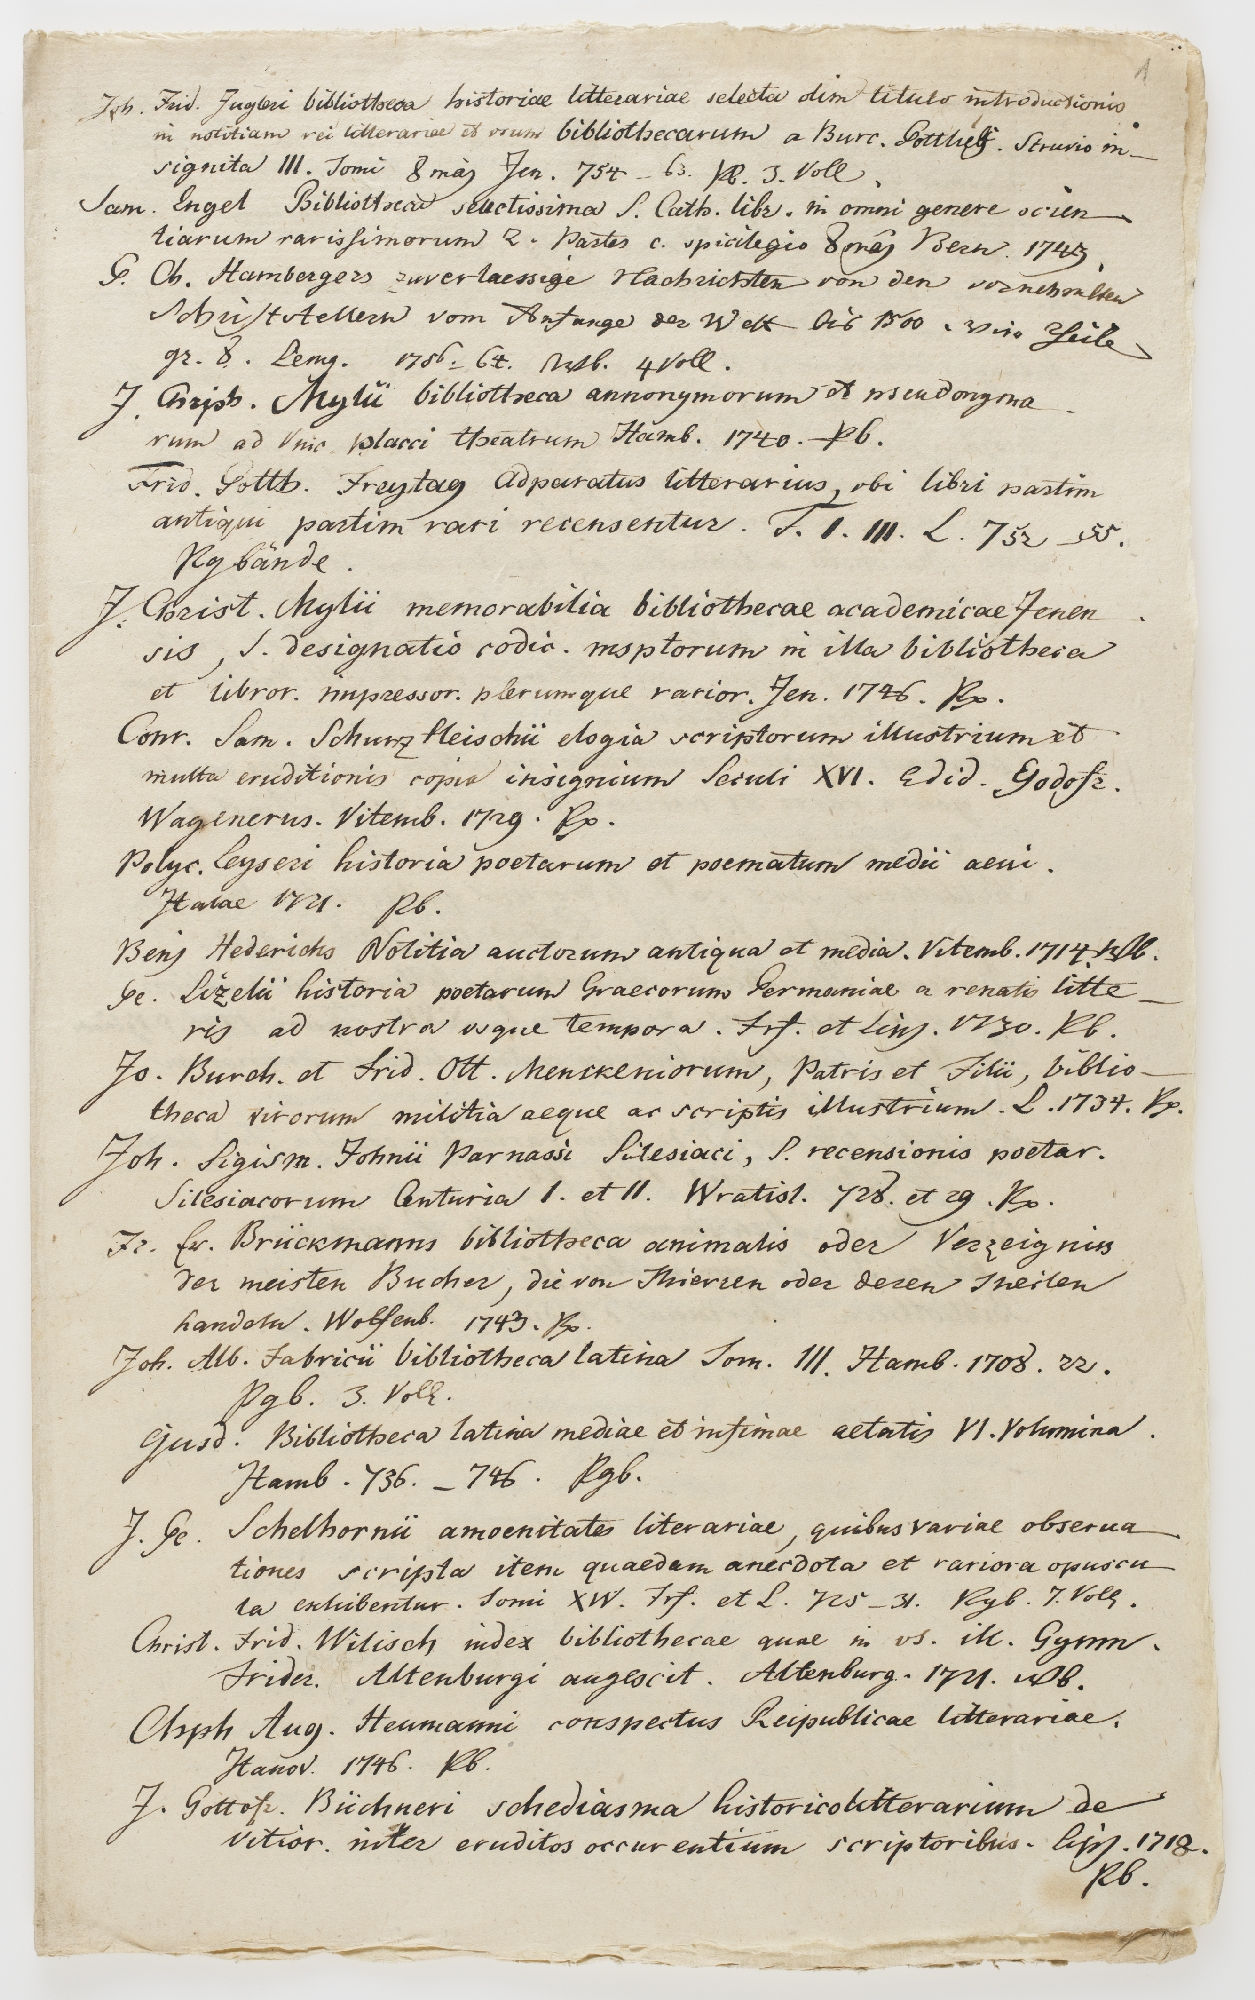 Joh. Frid. Jugleri bibliotheca historiae litterariae selecta olim titulo introductionis
in notitiam rei litterariae et usum bibliothecarum a Burc. Gotthelf. Struvio in-
signita III. Tomi 8 maj Jen. 754 - 63. Pb. 3. Voll.
Sam. Engel Bibliotheca selectissima S. Cath. libr. in omni genere scien
tiarum rarissimorum 2. Partes c. spicilegio 8 maj Bern. 1743.
G. Ch. Hambergers zuverlaessige Nachrichten von den vornehmsten
Schriftstellern vom Anfange der Welt bis 1500. Theile
gr. 8. Lemg. 1756 - 64. 4 Voll.
J. Christ. Mylii bibliotheca annonymorum et pseudonyma
rum ad Vinc. placci theatrum Hamb. 1740. Pb.
Frid. Gotth. Freytag Adparatus litterarius, obi libri partim
antiqui partim rari recensentur. T. I. III. L. 752 - 55.
Pgbände.
J. Christ. Mylii memorabilia bibliothecae academicae Jenen
sis, S. designatio codic. msptorum in illa bibliotheca
et libror. impressor. plerumque rarior. Jen. 1746. Pp.
Conr. Sam. Schurzfleischii elogia scriptorum illustrium et
multa eruditionis copia insignium Seculi XVI. Edid. Godofr.
Wagenerus. Vitemb. 1729. Pp.
Polyc. Leyseri historia poetarum et poematum medii aeui.
Halae 1721. Pb.
Benj Hederichs Notitia auctorum antiqua et media. Vitemb. 1714.
Ge. Lizelii historia poetarum Graecorum Germaniae a renatis litte-
ris ad nostra usque tempora. Frf. et Lips. 1730. Pb.
Jo. Burch. et Frid. Ott. Menckeniorum, Patris et Filii, biblio-
theca virorum militia aeque ac scriptis illustrium. L. 1734. Pp.
Joh. Sigism. Johnii Parnassi Silesiaci, S. recensionis poetar.
Silesiacorum Centuria I. et II. Wratisl. 728. et 29. Pp.
Fr. Er. Brückmanns bibliotheca animalis oder Verzeignis
der meisten Bucher, die von Thierren oder deren Theilen
handeln. Wolfenb. 1743. Pp.
Joh. Alb. Fabricii bibliotheca latina Tom. III. Hamb. 1708. 22.
Pgb. 3. Voll.
Ejusd. Bibliotheca latina mediae et infimae aetatis VI. Volumina.
Hamb. 736. - 746. Pgb.
J. Ge. Schelhornii amoenitates literariae, quibus variae obserua
tiones scripta item quaedam anecdota et rariora opuscu
la exhibentur. Tomi XIV. Frf. et L. 725 - 31. Pgb. 7. Voll.
Christ. Frid. Wilisch index bibliothecae quae in us. ill. Gymn.
Frider. Altenburgi augescit. Altenburg. 1721.
Chsph Aug. Heumanni conspectus Reipublicae litterariae.
Hanov. 1746. Pb.
J. Gottofr. Büchneri schediasma historicolitterarium de
vitior. inter eruditos occurentium scriptoribus. Lips. 1718.
Pb.